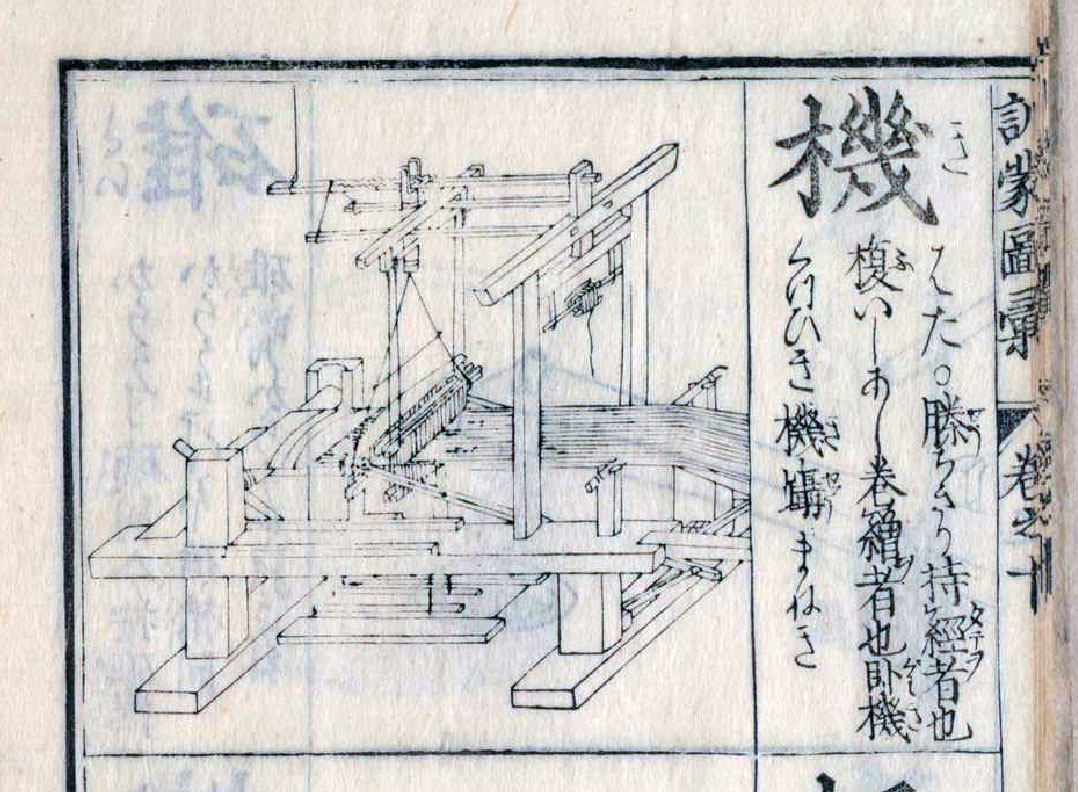 訓蒙圖彙 卷之十
機
き
はた。勝ちきり持經者也
複いしあし卷繒者也臥機
くつひき機躡まねき